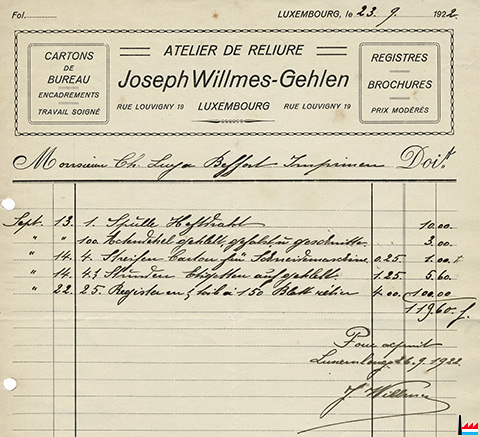 Fol.
LUXEMBOURG, le 23. 9. 1922.
CARTONS
DE
BUREAU
ENCADREMENTS
TRAVAIL SOIGNÉ
ATELIER DE RELIURE
Joseph Willmes-Gehlen
RUE LOUVIGNY 19 LUXEMBOURG RUE LOUVIGNY 19
REGISTRES
BROCHURES
PRIX MODÉRÉS
Monsieur Ch. Beffort Imprimeur Doit
Sept. 13. 1. Spulle Heftdraht 10.00
" " 100 gefalzt u geschnitten 3.00
" 14. 4. Streifen Carton für Schneidmaschine 0.25 1.00
" 14. 4½ Stunden Etiquetten aufgeklebt 1.25 5.60
" 22. 25. Register en à 150 Blatt 4.00 100.00
119.60 f.
Pour acquit
Luxembourg 26.9.1922
J. Willmes